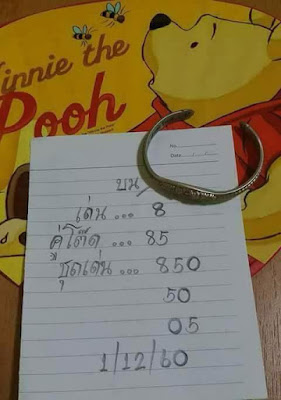 Winnie the
Pooh
No.
Date
บน
เด่น ... 8
คู่โต๊ด ... 85
ชุดเด่น ... 850
50
05
1/12/60